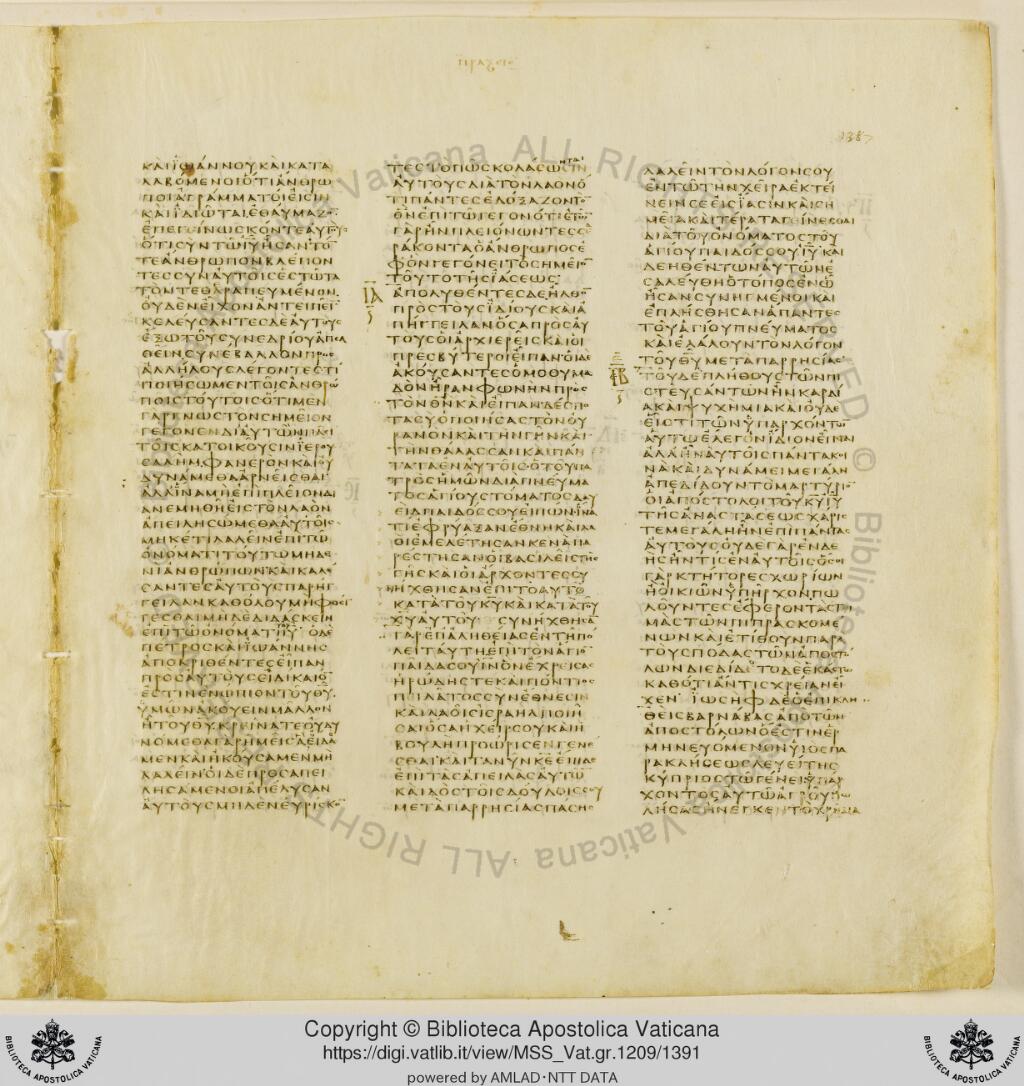 ΠΡΑΞΕΙΣ
ΚΑΙΙΩΑΝΝΟΥΚΑΙΚΑΤΑ
ΛΑΒΟΜΕΝΟΙΟΤΙΑΝΘΡΩ
ΠΟΙΑΓΡΑΜΜΑΤΟΙΕΙΣΙΝ
ΚΑΙΙΔΙΩΤΑΙΕΘΑΥΜΑΖΟ
ΕΠΕΓΕΙΝΩΣΚΟΝΤΕΑΥΤΟΥΣ
ΟΤΙΣΥΝΤΩΙΥΗΣΑΝΤΟ
ΤΕΑΝΘΡΩΠΟΝΒΛΕΠΟΝ
ΤΕΣΣΥΝΑΥΤΟΙΣΕΣΤΩΤΑ
ΤΟΝΤΕΘΑΡΑΠΕΥΜΕΝΟΝ
ΟΥΔΕΝΕΙΧΟΝΑΝΤΕΙΠΕΙ
ΚΕΛΕΥΣΑΝΤΕΣΔΕΑΥΤΟΥΣ
ΕΞΩΤΟΥΣΥΝΕΔΡΙΟΥΑΠΕΛ
ΘΕΙΝΣΥΝΕΒΑΛΛΟΝΠΡΟΣ
ΑΛΛΗΛΟΥΣΛΕΓΟΝΤΕΣΤΙ
ΠΟΙΗΣΩΜΕΝΤΟΙΣΑΝΘΡΩ
ΠΟΙΣΤΟΥΤΟΙΣΟΤΙΜΕΝ
ΓΑΡΓΝΩΣΤΟΝΣΗΜΕΙΟΝ
ΓΕΓΟΝΕΝΔΙΑΥΤΩΝΠΑΣΙ
ΤΟΙΣΚΑΤΟΙΚΟΥΣΙΝΙΕΡΟΥ
ΣΑΛΗΜΦΑΝΕΡΟΝΚΑΙΟΥ
ΔΥΝΑΜΕΘΑΑΡΝΕΙΣΘΑΙ
ΑΛΛΙΝΑΜΗΕΠΙΠΛΕΙΟΝΔΙ
ΑΝΕΜΗΘΗΕΙΣΤΟΝΛΑΟΝ
ΑΠΕΙΛΗΣΩΜΕΘΑΑΥΤΟΙΣ
ΜΗΚΕΤΙΛΑΛΕΙΝΕΠΙΤΩ
ΟΝΟΜΑΤΙΤΟΥΤΩΜΗΔΕ
ΝΙΑΝΘΡΩΠΩΝΚΑΙΚΑΛΕ
ΣΑΝΤΕΣΑΥΤΟΥΣΠΑΡΗΓ
ΓΕΙΛΑΝΚΑΘΟΛΟΥΜΗΦΘΕΓ
ΓΕΣΘΑΙΜΗΔΕΔΙΔΑΣΚΕΙΝ
ΕΠΙΤΩΟΝΟΜΑΤΙΙΥ ΟΔΕ
ΠΕΤΡΟΣΚΑΙΙΩΑΝΗΣ
ΑΠΟΚΡΙΘΕΝΤΕΣΕΙΠΑΝ
ΠΡΟΣΑΥΤΟΥΣΕΙΔΙΚΑΙΟ
ΕΣΤΙΝΕΝΩΠΙΟΝΤΟΥΘΥ
ΥΜΩΝΑΚΟΥΕΙΝΜΑΛΛΟΝ
ΗΤΟΥΘΥΚΡΕΙΝΑΤΕΟΥΔΥ
ΝΟΜΕΘΑΓΑΡΗΜΕΙΣΑΕΙΔΑ
ΜΕΝΚΑΙΗΚΟΥΣΑΜΕΝΜΗ
ΛΑΛΕΙΝΟΙΔΕΠΡΟΣΑΠΕΙ
ΛΗΣΑΜΕΝΟΙΑΠΕΛΥΣΑΝ
ΑΥΤΟΥΣΜΗΔΕΝΕΥΡΙΣΚΟ
ΤΕΣΤΟΠΩΣΚΟΛΑΣΩΣΙΝ
ΑΥΤΟΥΣΔΙΑΤΟΝΛΑΟΝΟ
ΤΙΠΑΝΤΕΣΕΔΟΞΑΖΟΝΤΟ
ΘΝΕΠΙΤΩΓΕΓΟΝΟΤΙΕΤΩ
ΓΑΡΗΝΠΛΕΙΟΝΩΝΤΕΣΣΕ
ΡΑΚΟΝΤΑΟΑΝΘΡΩΠΟΣΕ
ΦΟΝΓΕΓΟΝΕΙΤΟΣΗΜΕΙΟ
ΤΟΥΤΟΤΗΣΙΑΣΕΩΣ
ΙΑ ΑΠΟΛΥΘΕΝΤΕΣΔΕΗΛΘΟ
ΠΡΟΣΤΟΥΣΙΔΙΟΥΣΚΑΙΑ
ΠΗΓΓΕΙΛΑΝΟΣΑΠΡΟΣΑΥ
ΤΟΥΣΟΙΑΡΧΙΕΡΕΙΣΚΑΙΟΙ
ΠΡΕΣΒΥΤΕΡΟΙΕΙΠΑΝΟΙΔΕ
ΑΚΟΥΣΑΝΤΕΣΟΜΟΘΥΜΑ
ΔΟΝΗΡΑΝΦΩΝΗΝΠΡΟΣ
ΤΟΝΘΝΚΑΙΕΙΠΑΝΔΕΣΠΟ
ΤΑΣΥΟΠΟΙΗΣΑΣΤΟΝΟΥ
ΡΑΝΟΝΚΑΙΤΗΝΓΗΝΚΑΙ
ΤΗΝΘΑΛΑΣΣΑΝΚΑΙΠΑΝ
ΤΑΤΑΕΝΑΥΤΟΙΣΟΤΟΥΠΑ
ΤΡΟΣΗΜΩΝΔΙΑΠΝΕΥΜΑ
ΤΟΣΑΓΙΟΥΣΤΟΜΑΤΟΣΔΑΥ
ΕΙΔΠΑΙΔΟΣΣΟΥΕΙΠΩΝΙΝΑ
ΤΙΕΦΡΥΑΞΑΝΕΘΝΗΚΑΙΛΑ
ΟΙΕΜΕΛΕΤΗΣΑΝΚΕΝΑΠΑ
ΡΕΣΤΗΣΑΝΟΙΒΑΣΙΛΕΙΣΤΗΣ
ΓΗΣΚΑΙΟΙΑΡΧΟΝΤΕΣΣΥ
ΝΗΧΘΗΣΑΝΕΠΙΤΟΑΥΤΟ
ΚΑΤΑΤΟΥΚΥΚΑΙΚΑΤΑΤΟΥ
ΧΥΑΥΤΟΥ ΣΥΝΗΧΘΗΣΑ
ΓΑΡΕΠΑΛΗΘΕΙΑΣΕΝΤΗΠΟ
ΛΕΙΤΑΥΤΗΕΠΙΤΟΝΑΓΙΟ
ΠΑΙΔΑΣΟΥΙΝΟΝΕΧΡΕΙΣΑΣ
ΗΡΩΔΗΣΤΕΚΑΙΠΟΝΤΙΟΣ
ΠΕΙΛΑΤΟΣΣΥΝΕΘΝΕΣΙΝ
ΚΑΙΛΑΟΙΣΙΣΡΑΗΛΠΟΙΗ
ΣΑΙΟΣΑΗΧΕΙΡΣΟΥΚΑΙΗ
ΒΟΥΛΗΠΡΟΩΡΙΣΕΝΓΕΝΕ
ΣΘΑΙΚΑΙΤΑΝΥΝΚΕΕΠΙΔΕ
ΕΠΙΤΑΣΑΠΕΙΛΑΣΑΥΤΩ
ΚΑΙΔΟΣΤΟΙΣΔΟΥΛΟΙΣΣΟΥ
ΜΕΤΑΠΑΡΡΗΣΙΑΣΠΑΣΗΣ
ΛΑΛΕΙΝΤΟΝΛΟΓΟΝΣΟΥ
ΕΝΤΩΤΗΝΧΕΙΡΑΕΚΤΕΙ
ΝΕΙΝΣΕΕΙΣΙΑΣΙΝΚΑΙΣΗ
ΜΕΙΑΚΑΙΤΕΡΑΤΑΓΕΙΝΕΣΘΑΙ
ΔΙΑΤΟΥΟΝΟΜΑΤΟΣΤΟΥ
ΑΓΙΟΥΠΑΙΔΟΣΣΟΥΙΥΚΑΙ
ΔΕΗΘΕΝΤΩΝΑΥΤΩΝΕ
ΣΑΛΕΥΘΗΟΤΟΠΟΣΕΝΩ
ΗΣΑΝΣΥΝΗΓΜΕΝΟΙΚΑΙ
ΕΠΛΗΣΘΗΣΑΝΑΠΑΝΤΕΣ
ΤΟΥΑΓΙΟΥΠΝΕΥΜΑΤΟΣ
ΚΑΙΕΛΑΛΟΥΝΤΟΝΛΟΓΟΝ
ΤΟΥΘΥΜΕΤΑΠΑΡΡΗΣΙΑΣ
ΙΒ ΤΟΥΔΕΠΛΗΘΟΥΣΤΩΝΠΙ
ΣΤΕΥΣΑΝΤΩΝΗΝΚΑΡΔΙ
ΑΚΑΙΨΥΧΗΜΙΑΚΑΙΟΥΔΕ
ΕΙΣΤΙΤΩΝΥΠΑΡΧΟΝΤΩ
ΑΥΤΩΕΛΕΓΟΝΙΔΙΟΝΕΙΝΑΙ
ΑΛΛΗΝΑΥΤΟΙΣΠΑΝΤΑΚΟΙ
ΝΑΚΑΙΔΥΝΑΜΕΙΜΕΓΑΛΗ
ΑΠΕΔΙΔΟΥΝΤΟΜΑΡΤΥΡΙΟ
ΟΙΑΠΟΣΤΟΛΟΙΤΟΥΚΥΙΥ
ΤΗΣΑΝΑΣΤΑΣΕΩΣΧΑΡΙΣ
ΤΕΜΕΓΑΛΗΗΝΕΠΙΠΑΝΤΑΣ
ΑΥΤΟΥΣΟΥΔΕΓΑΡΕΝΔΕ
ΗΣΗΝΤΙΣΕΝΑΥΤΟΙΣΟΣΟΙ
ΓΑΡΚΤΗΤΟΡΕΣΧΩΡΙΩΝ
ΗΟΙΚΙΩΝΥΠΗΡΧΟΝΠΩ
ΛΟΥΝΤΕΣΕΦΕΡΟΝΤΑΣΤΙ
ΜΑΣΤΩΝΠΙΠΡΑΣΚΟΜΕ
ΝΩΝΚΑΙΕΤΙΘΟΥΝΠΑΡΑ
ΤΟΥΣΠΟΔΑΣΤΩΝΑΠΟΣΤΟ
ΛΩΝΔΙΕΔΙΔΕΤΟΔΕΕΚΑΣΤΩ
ΚΑΘΟΤΙΑΝΤΙΣΧΡΕΙΑΝΕΙ
ΧΕΝ ΙΩΣΗΦΔΕΟΕΠΙΚΛΗ
ΘΕΙΣΒΑΡΝΑΒΑΣΑΠΟΤΩΝ
ΑΠΟΣΤΟΛΩΝΟΕΣΤΙΝΕΡ
ΜΗΝΕΥΟΜΕΝΟΝΥΙΟΣΠΑ
ΡΑΚΛΗΣΕΩΣΛΕΥΕΙΤΗΣ
ΚΥΠΡΙΟΣΤΩΓΕΝΕΙΥΠΑΡ
ΧΟΝΤΟΣΑΥΤΩΑΓΡΟΥΠΩ
ΛΗΣΑΣΗΝΕΓΚΕΝΤΟΧΡΗΜΑ
Copyright © Biblioteca Apostolica Vaticana
https://digi.vatlib.it/view/MSS_Vat.gr.1209/1391
powered by AMLAD·NTT DATA